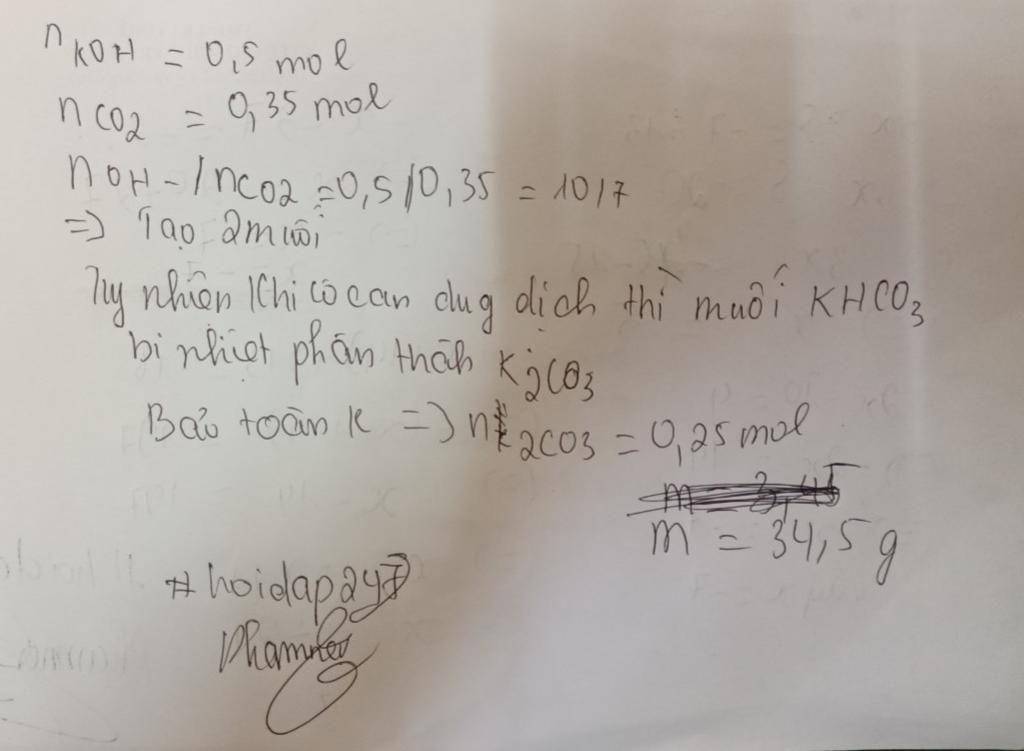 nKOH = 0,5 mol
nCO2 = 0,35 mol
nOH- / nCO2 = 0,5/0,35 = 10/7
=> Tạo 2 muối
Tuy nhiên khi cô cạn dug dịch thì muối KHCO3
bị nhiệt phân thành K2CO3
Bảo toàn K => nK2CO3 = 0,25 mol
m = 34,5 g
#hoidap247